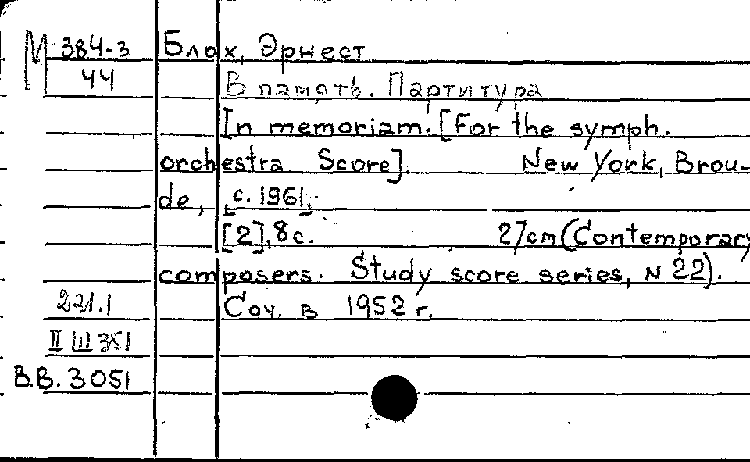 М 384-3 Блох, Эрнест
44 В память. Партитура
In memoriam. [For the symph.
orchestra Score]. New York, Brou-
de, [c. 1961].
[2], 8 с. 27 cm (Contemporary
composers. Study score series, N 22).
221.1 Соч. в 1952 г.
II III 351
В.В. 3051